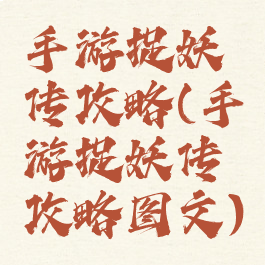 手游捉妖
传攻略(手
游捉妖传
攻略图文)